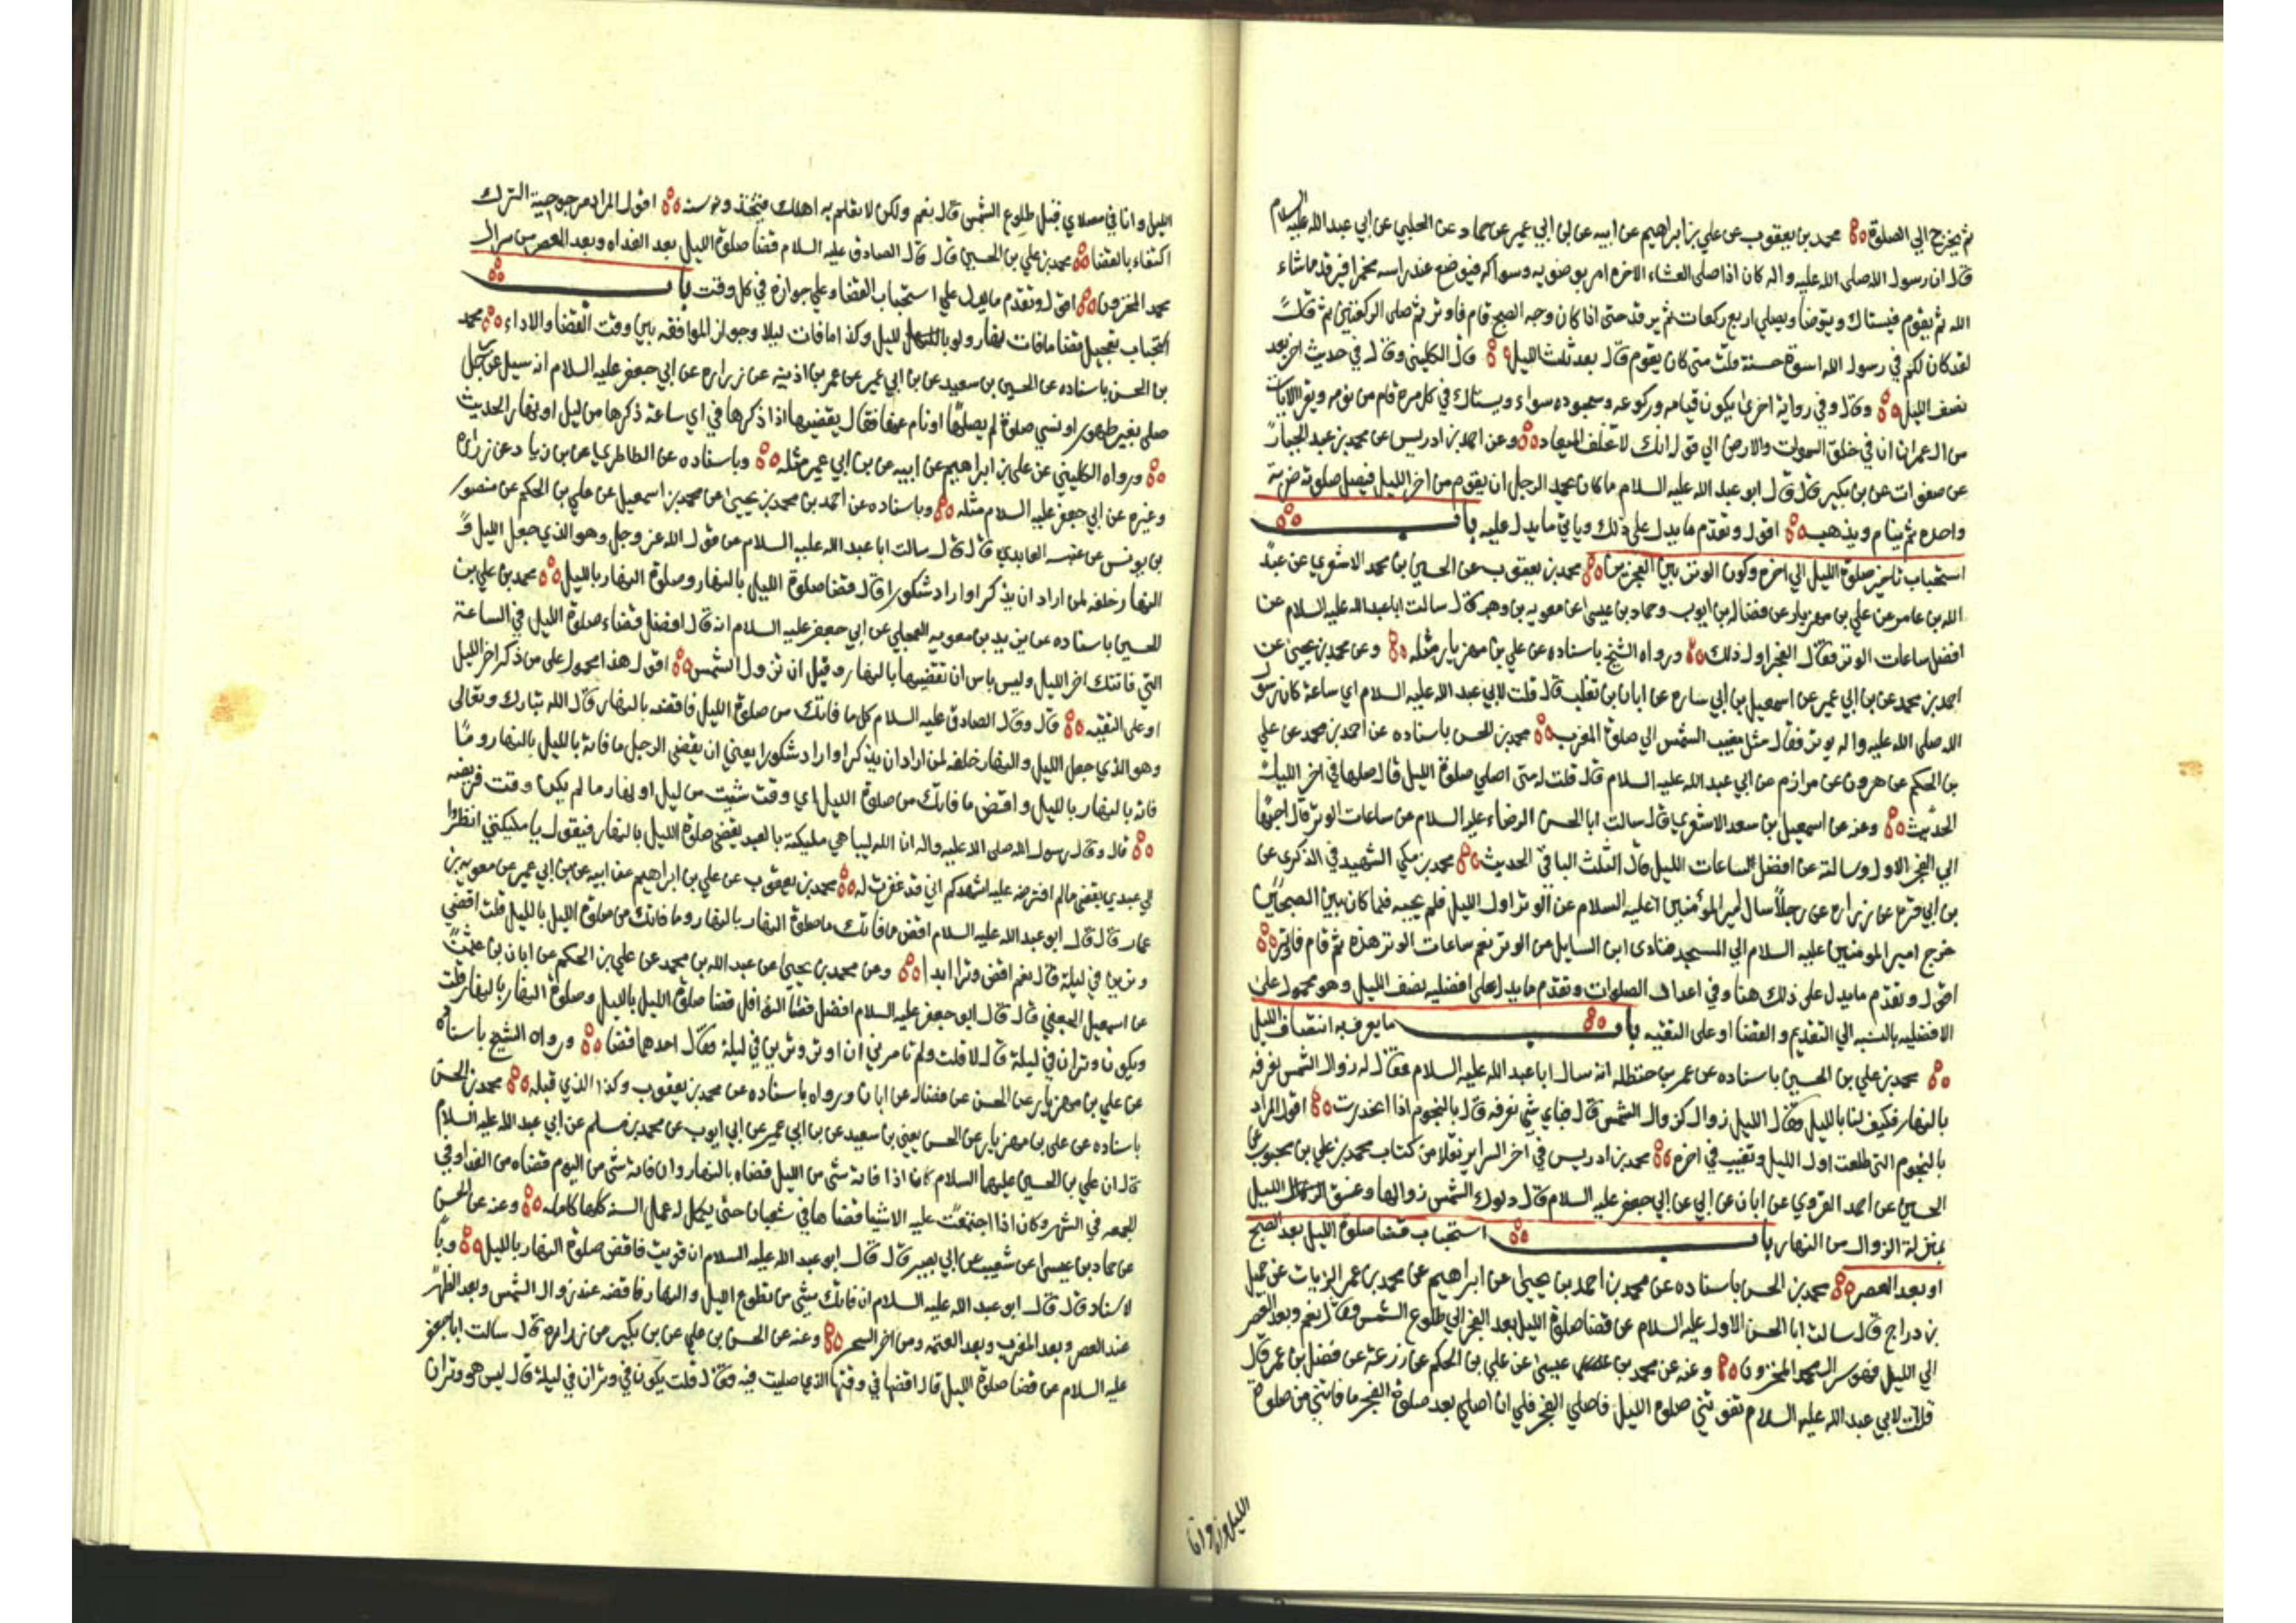 ثم يخرج الي الصلوة محمد بن يعقوب عن علي بن ابراهيم عن ابيه عن بن ابي عمير عن حماد عن الحلبي عن ابي عبد الله عليه السلام
قال ان رسول الله صلى الله عليه واله كان اذا صلى العشاء الاخره امر بوضوئه وسواكه فيوضع عند راسه مخمرا فيرقد ماشاء
الله ثم يقوم فيستاك ويتوضا ويصلي اربع ركعات ثم يرقد حتى اذا كان وجه الصبح قام فاوتر ثم صلى الركعتين ثم قال
لقد كان لكم في رسول الله اسوة حسنة قلت متى كان يقوم قال بعد ثلث الليل قال الكليني وقال في حديث اخر بعد
نصف الليل وقال وفي رواية اخرى يكون قيامه وركوعه وسجوده سواء ويستاك في كل مرة قام من نومه ويقرا الايات
من ال عمران ان في خلق السموات والارض الي قوله انك لا تخلف الميعاد وعن احمد بن ادريس عن محمد بن عبد الجبار
عن صفوان عن بن بكير قال قال ابو عبد الله عليه السلام ما كان يحمد الرجل ان يقوم من اخر الليل فيصلي صلوته ضربة
واحده ثم ينام ويذهب اقول وتقدم ما يدل على ذلك وياتي ما يدل عليه باب
استحباب تاخير صلوة الليل الي اخره وكون الوتر بين الفجرين محمد بن يعقوب عن الحسين بن محمد الاشعري عن عبد
الله بن عامر عن علي بن مهزيار عن فضاله بن ايوب وحماد بن عيسى عن معويه بن وهب قال سالت ابا عبد الله عليه السلام عن
افضل ساعات الوتر فقال الفجر اول ذلك ورواه الشيخ باسناده عن علي بن مهزيار مثله وعن محمد بن يحيى عن
احمد بن محمد عن بن ابي عمير عن اسمعيل بن ابي ساره عن ابان بن تغلب قال قلت لابي عبد الله عليه السلام اي ساعة كان رسول
الله صلى الله عليه واله يوتر فقال مثل مغيب الشمس الي صلوة المغرب محمد بن الحسن باسناده عن احمد بن محمد عن علي
بن الحكم عن هرون عن مرازم عن ابي عبد الله عليه السلام قال قلت له متى اصلي صلوة الليل قال صلها في اخر الليل
الحديث وعنه عن اسمعيل بن سعد الاشعري قال سالت ابا الحسن الرضا عليه السلام عن ساعات الوتر قال احبها
الي الفجر الاول وسالته عن افضل ساعات الليل قال الثلث الباقي الحديث محمد بن مكي الشهيد في الذكرى عن
بن ابي قره عن زراره عن رجلا سال امير المؤمنين عليه السلام عن الوتر اول الليل فلم يجبه فلما كان بين الصبحين
خرج امير المومنين عليه السلام الي المسجد فنادى اين السايل عن الوتر نعم ساعات الوتر هذه ثم قام فاوتر
اقول وتقدم ما يدل على ذلك هنا وفي اعداد الصلوات وتقدم ما يدل على افضليه نصف الليل وهو محمول على
الافضليه بالنسبه الي التقديم والقضا او على التقيه باب ما يعرف به انتصاف الليل
محمد بن علي بن الحسين باسناده عن عمر بن حنظله انه سال ابا عبد الله عليه السلام فقال له زوال الشمس نعرفه
بالنهار فكيف لنا بالليل فقال لليل زوال كزوال الشمس قال فباي شي نعرفه قال بالنجوم اذا انحدرت اقول المراد
بالنجوم التي طلعت اول الليل وتغيب في اخره محمد بن ادريس في اخر السراير نقلا من كتاب محمد بن علي بن محبوب عن
الحسين عن احمد القروي عن ابان عن ابي عن ابي جعفر عليه السلام قال دلوك الشمس زوالها وغسق الليل
بمنزلة الزوال من النهار باب استحباب قضا صلوة الليل بعد الصبح
او بعد العصر محمد بن الحسن باسناده عن محمد بن احمد بن يحيى عن ابراهيم عن محمد بن عمر الزيات عن جميل
بن دراج قال سالت ابا الحسن الاول عليه السلام عن قضا صلوة الليل بعد الفجر الي طلوع الشمس فقال نعم وبعد العصر
الي الليل فهو من سر ال محمد المخزون وعنه عن محمد بن عيسى عن علي بن الحكم عن زرعة عن فضل بن عمر قال
قلت لابي عبد الله عليه السلام تفوتني صلوة الليل فاصلي الفجر فلي ان اصلي بعد صلوة الفجر ما فاتني من صلوة
الليل وانا
الليل وانا في مصلاي قبل طلوع الشمس قال نعم ولكن لا تعلم به اهلك فيتخذونه سنة اقول المراد مرجوحية الترك
اكتفاء بالقضا محمد بن علي بن الحسين قال قال الصادق عليه السلام قضا صلوة الليل بعد الغداه وبعد العصر من سر ال
محمد المخزون اقول وتقدم ما يدل علي استحباب القضا وعلي جوازه في كل وقت باب
استحباب تعجيل قضا ما فات نهارا ولو بالليل وكذا ما فات ليلا وجواز الموافقه بين وقت القضا والاداء محمد
بن الحسن باسناده عن الحسين بن سعيد عن بن ابي عمير عن عمر بن اذينه عن زراره عن ابي جعفر عليه السلام انه سيل عن رجل
صلى بغير طهور او نسي صلوة لم يصلها او نام عنها فقال يقضيها اذا ذكرها في اي ساعة ذكرها من ليل او نهار الحديث
ورواه الكليني عن علي بن ابراهيم عن ابيه عن بن ابي عمير مثله وباسناده عن الطاطري عن بن زياد عن زراره
وغيره عن ابي جعفر عليه السلام مثله وباسناده عن احمد بن محمد بن يحيى عن محمد بن اسمعيل عن علي بن الحكم عن منصور
بن يونس عن عنبسه العابدي قال قال سالت ابا عبد الله عليه السلام عن قول الله عز وجل وهو الذي جعل الليل و
النهار خلفه لمن اراد ان يذكر او اراد شكورا قال قضا صلوة الليل بالنهار وصلوة النهار بالليل محمد بن علي بن
الحسين باسناده عن بريد بن معويه العجلي عن ابي جعفر عليه السلام انه قال افضل قضاء صلوة الليل في الساعة
التي فاتتك اخر الليل وليس باس ان تقضيها بالنهار وقبل ان تزول الشمس اقول هذا محمول على من ذكر اخر الليل
او على التقيه قال وقال الصادق عليه السلام كل ما فاتك من صلوة الليل فاقضه بالنهار قال الله تبارك وتعالى
وهو الذي جعل الليل والنهار خلفه لمن اراد ان يذكر او اراد شكورا يعني ان يقضي الرجل ما فاته بالليل بالنهار وما
فاته بالنهار بالليل واقض ما فاتك من صلوة الليل اي وقت شيت من ليل او نهار ما لم يكن وقت فريضه
قال وقال رسول الله صلى الله عليه واله ان الله ليباهي مليكته بالعبد يقضي صلوة الليل بالنهار فيقول يا مليكتي انظروا
الي عبدي يقضي مالم افترضه عليه اشهدكم اني قد غفرت له محمد بن يعقوب عن علي بن ابراهيم عن ابيه عن بن ابي عمير عن معويه بن
عمار قال قال ابو عبد الله عليه السلام اقض ما فاتك من صلوة النهار بالنهار وما فاتك من صلوة الليل بالليل قلت اقضي
وترين في ليلة قال نعم اقض وترا ابدا وعن محمد بن يحيى عن عبد الله بن محمد عن علي بن الحكم عن ابان بن عثمن
عن اسمعيل الجعفي قال قال ابو جعفر عليه السلام افضل قضا النوافل قضا صلوة الليل بالليل وصلوة النهار بالنهار قلت
ويكون وتران في ليلة قال لا قلت ولم تامرني ان اوتر وترين في ليلة فقال احدهما قضا ورواه الشيخ باسناده
عن علي بن مهزيار عن الحسن عن فضاله عن ابان ورواه باسناده عن محمد بن يعقوب وكذا الذي قبله محمد بن الحسن
باسناده عن علي بن مهزيار عن الحسن يعني بن سعيد عن بن ابي عمير عن ابي ايوب عن محمد بن مسلم عن ابي عبد الله عليه السلام
قال ان علي بن الحسين عليهما السلام كان اذا فاته شي من الليل قضاه بالنهار وان فاته شي من اليوم قضاه من الغد او في
الجمعه في الشهر وكان اذا اجتمعت عليه الاشيا قضاها في شعبان حتى يكمل له عمل السنه كلها كامله وعنه عن الحسن
عن حماد بن عيسى عن شعيب عن ابي بصير قال قال ابو عبد الله عليه السلام ان قويت فاقض صلوة النهار بالليل وبا
لاسناد قال قال ابو عبد الله عليه السلام ان فاتك شي من تطوع الليل والنهار فاقضه عند زوال الشمس وبعد الظهر
عند العصر وبعد المغرب وبعد العتمه ومن اخر السحر وعنه عن الحسن بن علي عن بن بكير عن زراره قال سالت ابا جعفر
عليه السلام عن قضا صلوة الليل قال اقضها في وقتها الذي صليت فيه فقال قلت يكون في وتران في ليلة قال ليس هو وتران